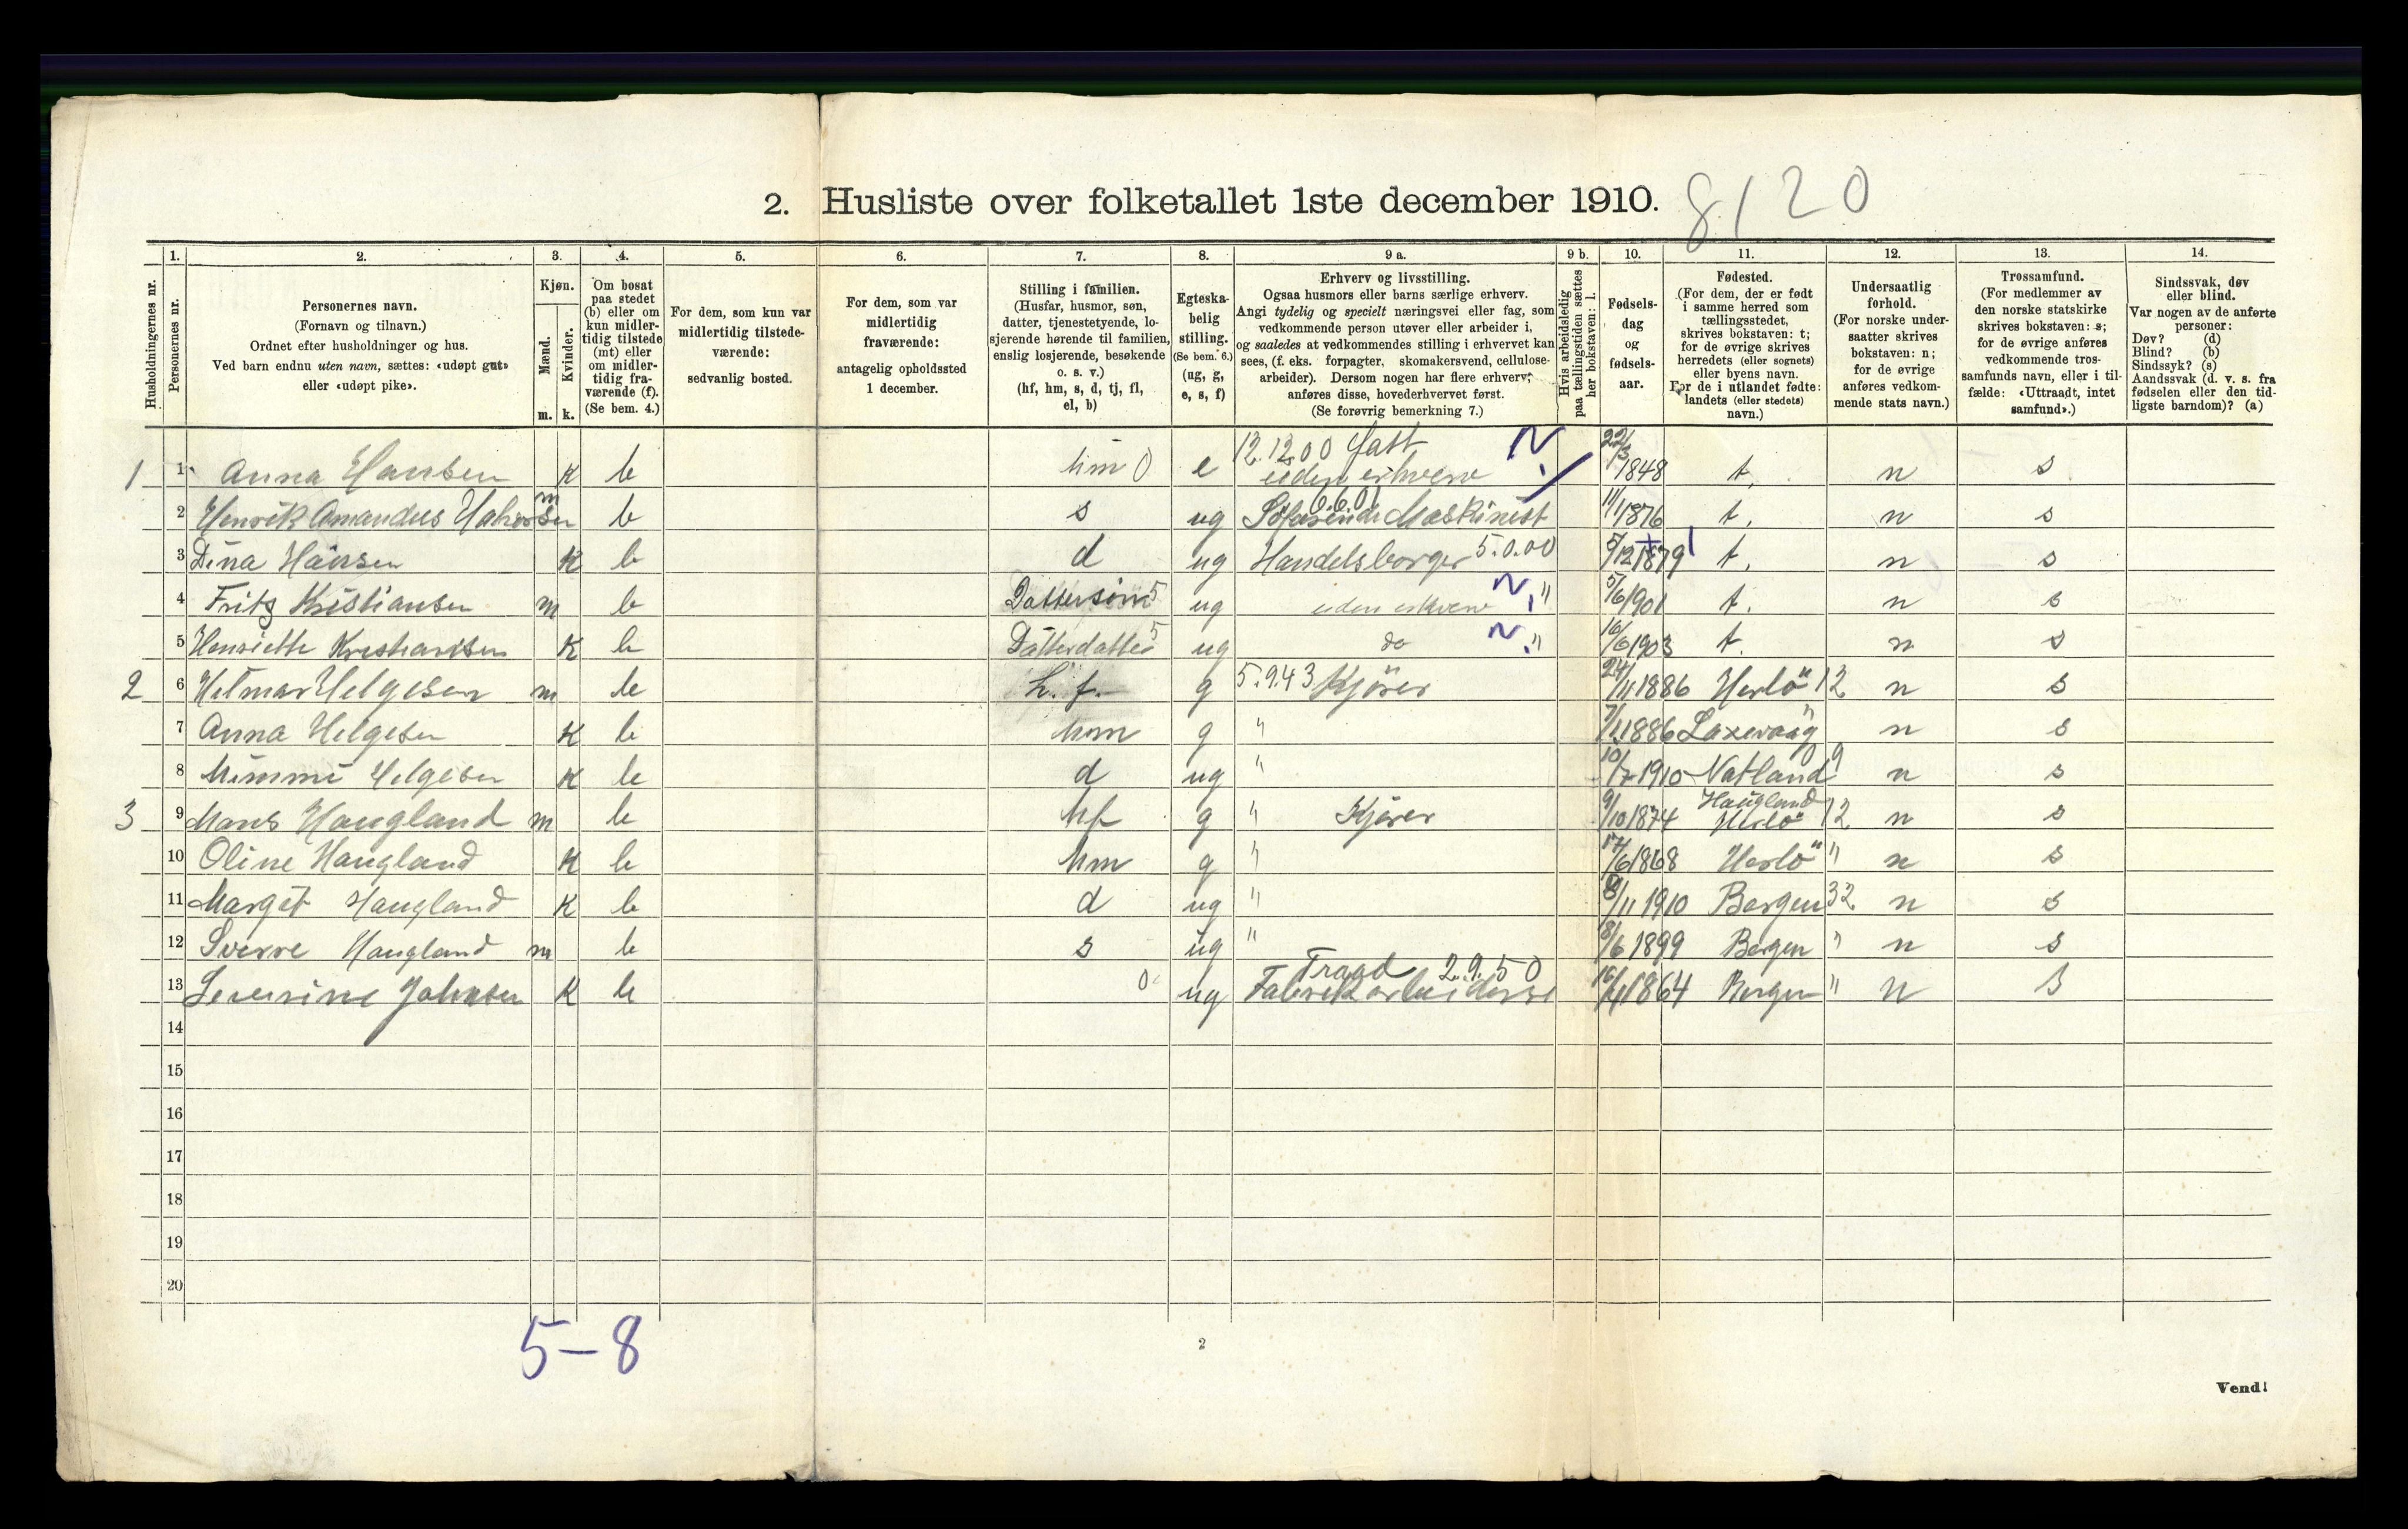 2. Husliste over folketallet 1ste december 1910. 8120
Husholdningernes nr.
1. Personernes nr.
2. Personernes navn.
(Fornavn og tilnavn.)
Ordnet efter husholdninger og hus.
Ved barn endnu uten navn, sættes: «udøpt gut»
eller «udøpt pike».
3. Kjøn.
Mænd. m.
Kvinder. k.
4. Om bosat
paa stedet
(b) eller om
kun midler-
tidig tilstede
(mt) eller
om midler-
tidig fra-
værende (f).
(Se bem. 4.)
5. For dem, som kun var
midlertidig tilstede-
værende:
sedvanlig bosted.
6. For dem, som var
midlertidig
fraværende:
antagelig opholdssted
1 december.
7. Stilling i familien.
(Husfar, husmor, søn,
datter, tjenestetyende, lo-
sjerende hørende til familien,
enslig losjerende, besøkende
o. s. v.)
(hf, hm, s, d, tj, fl,
el, b)
8. Egteska-
belig
stilling.
(Se bem. 6.)
(ug, g,
e, s, f)
9 a. Erhverv og livsstilling.
Ogsaa husmors eller barns særlige erhverv.
Angi tydelig og specielt næringsvei eller fag, som
vedkommende person utøver eller arbeider i,
og saaledes at vedkommendes stilling i erhvervet kan
sees, (f. eks. forpagter, skomakersvend, cellulose-
arbeider). Dersom nogen har flere erhverv,
anføres disse, hovederhvervet først.
(Se forøvrig bemerkning 7.)
9 b. Hvis arbeidsledig
paa tællingstiden sættes
her bokstaven: l.
10. Fødsels-
dag
og
fødsels-
aar.
11. Fødested.
(For dem, der er født
i samme herred som
tællingsstedet,
skrives bokstaven: t;
for de øvrige skrives
herredets (eller sognets)
eller byens navn.
For de i utlandet fødte:
landets (eller stedets)
navn.)
12. Undersaatlig
forhold.
(For norske under-
saatter skrives
bokstaven: n;
for de øvrige
anføres vedkom-
mende stats navn.)
13. Trossamfund.
(For medlemmer av
den norske statskirke
skrives bokstaven: s;
for de øvrige anføres
vedkommende tros-
samfunds navn, eller i til-
fælde: «Uttraadt, intet
samfund».)
14. Sindssvak, døv
eller blind.
Var nogen av de anførte
personer:
Døv? (d)
Blind? (b)
Sindssyk? (s)
Aandssvak (d. v. s. fra
fødselen eller den tid-
ligste barndom)? (a)
12.12.00 N
1 1 Anna Hansen K b hm 0 e uden erhverv 22/3 1848 t. n s
2 Henrik Amandus m b s ug Maskinist 11/1 1876 t. n s
3 Dina Hansen K b d ug Handelsborger 5.0.00 5/12 1879 t. n s
4 Fritz Kristiansen m b Dattersøn 5 ug uden erhverv N " 5/6 1901 t. n s
5 Henriette Kristiansen K b Datterdatter 5 ug do N " 16/6 1903 t. n s
2 6 Hilmar Helgesen m b h. f. g 5.9.43 Kjører 24/11 1886 Herlö 12 n s
7 Anna Helgesen K b hm g " 7/11 1886 Laxevaag " n s
8 Mimmi Helgesen K b d ug " 10/7 1910 Natland 9 n s
3 9 Mons Haugland m b hf g " Kjører 9/10 1874 Haugland Herlö 12 n s
10 Oline Haugland K b hm g " 17/6 1868 Herlö " n s
11 Margit Haugland K b d ug " /11 1910 Bergen 32 n s
12 Sverre Haugland m b s ug " 18/6 1899 Bergen " n s
13 Severine Johnsen K b 0 ug Traad 2.9.50 Fabrikarbeiderse 16/4 1864 Bergen " n s
14
15
16
17
18
19
20
5-8
2
Vend!